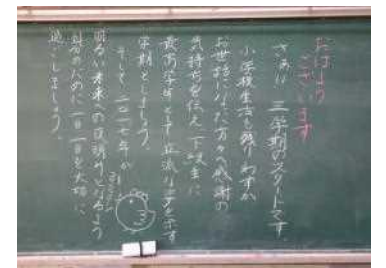 おはよう
ございます
さあ!! 三学期のスタートです。
小学校生活も残りわずか
お世話になった方々へ感謝の
気持ちを伝え、下級生に
最高学年として立派な姿を示す
学期としましょう。
そして二〇一七年が
明るい未来への
自分のために一日一日を大切に
過ごしましょう。